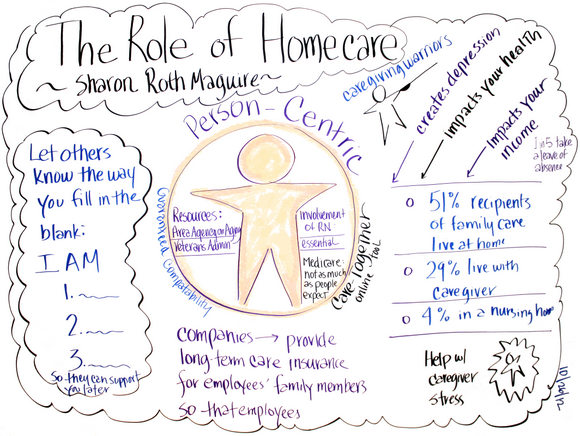 The Role of Homecare
~ Sharon Roth Maguire ~
Person-Centric
caregiving warriors
creates depression
impacts your health
impacts your
income
1 in 5 take
a leave of
absence
Let others
know the way
you fill in the
blank:
I AM
1.
2.
3.
So they can support
you later
Resources:
Area Agency on Aging
Veterans Admin
Involvement
of RN
essential
Medicare:
not as much
as people
expect
Care Together
online tool
51% recipients
of family care
live at home
29% live with
caregiver
4% in a nursing home
companies → provide
long-term care insurance
for employees' family members
so that employees
Help w/
caregiver
stress